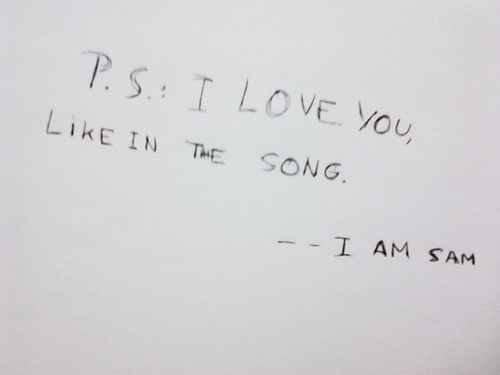 P.S.: I LOVE YOU,
LikE IN THE SONG.
-- I AM SAM